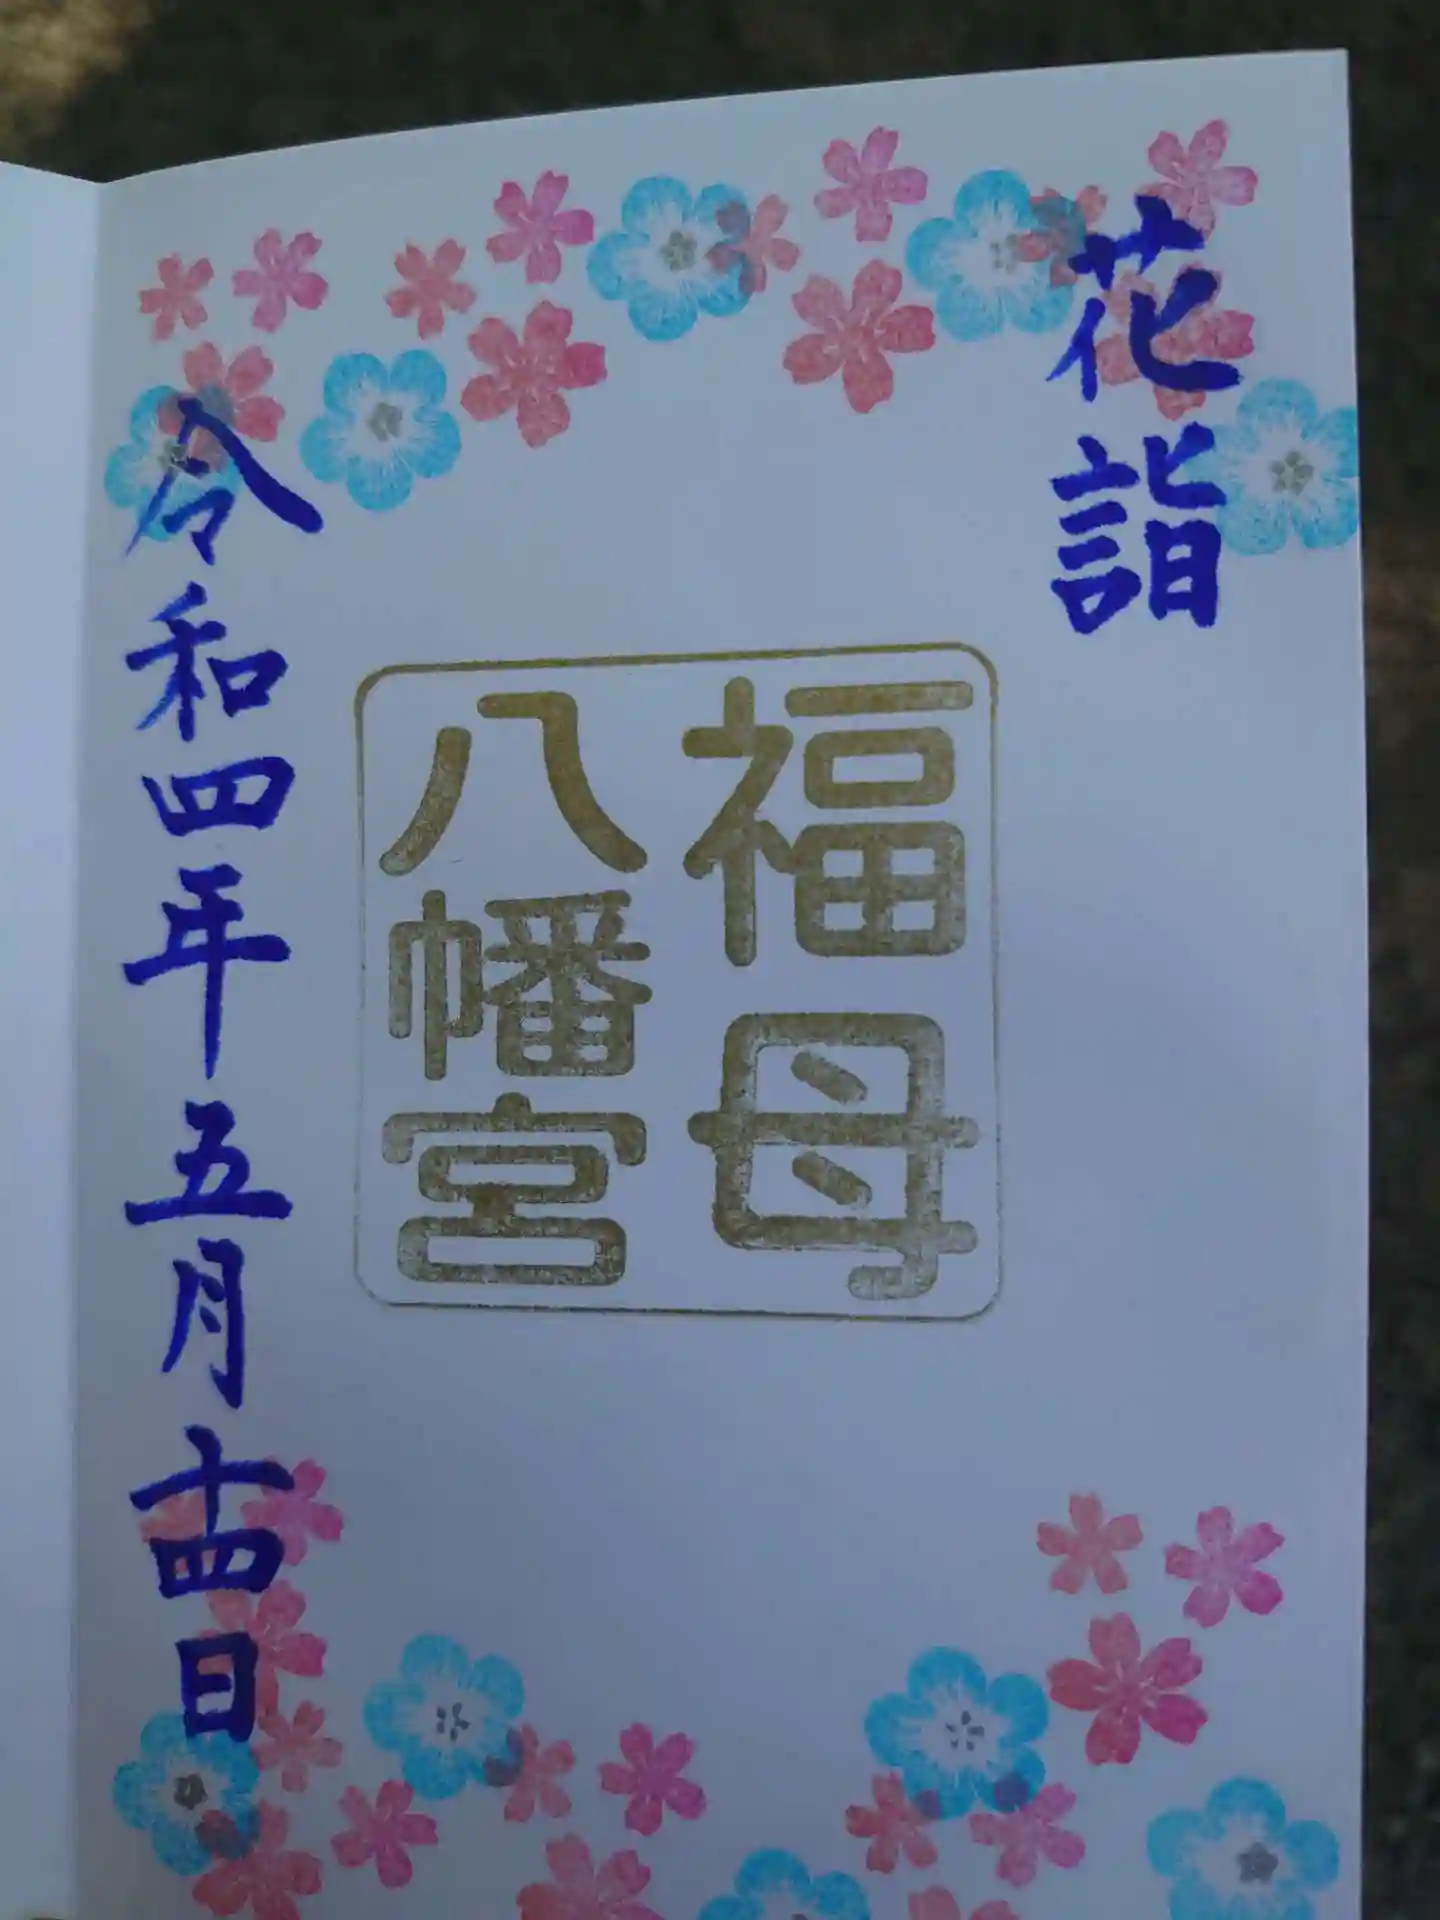 花詣
福母
八幡宮
令和四年五月十四日